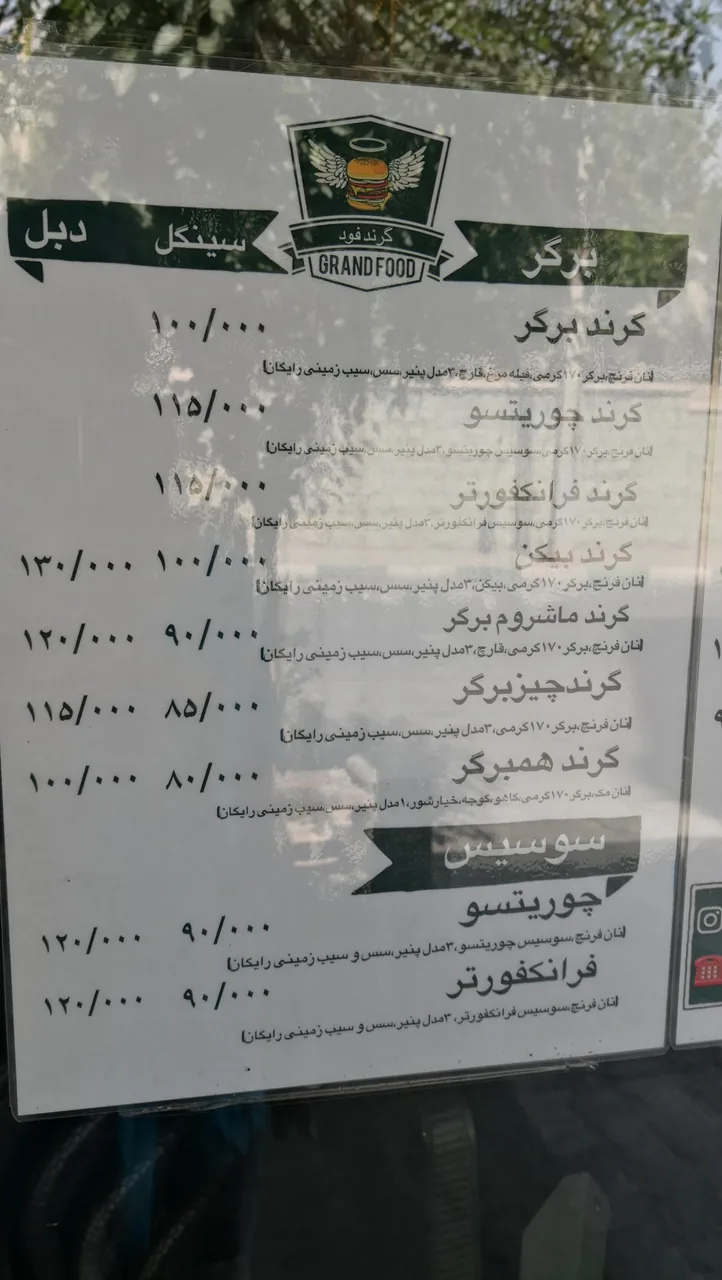 گرند فود
GRAND FOOD
برگر سینگل دبل
گرند برگر ۱۰۰/۰۰۰
(نان فرنچ،برگر ۱۷۰گرمی،فیله مرغ،قارچ،۳مدل پنیر،سس،سیب زمینی رایگان)
گرند چوریتسو ۱۱۵/۰۰۰
(نان فرنچ،برگر ۱۷۰گرمی،سوسیس چوریتسو،۳مدل پنیر،سس،سیب زمینی رایگان)
گرند فرانکفورتر ۱۱۵/۰۰۰
(نان فرنچ،برگر ۱۷۰گرمی،سوسیس فرانکفورتر،۳مدل پنیر،سس،سیب زمینی رایگان)
گرند بیکن ۱۰۰/۰۰۰ ۱۳۰/۰۰۰
(نان فرنچ،برگر ۱۷۰گرمی،بیکن،۳مدل پنیر،سس،سیب زمینی رایگان)
گرند ماشروم برگر ۹۰/۰۰۰ ۱۲۰/۰۰۰
(نان فرنچ،برگر ۱۷۰گرمی،قارچ،۳مدل پنیر،سس،سیب زمینی رایگان)
گرندچیزبرگر ۸۵/۰۰۰ ۱۱۵/۰۰۰
(نان فرنچ،برگر ۱۷۰گرمی،۳مدل پنیر،سس،سیب زمینی رایگان)
گرند همبرگر ۸۰/۰۰۰ ۱۰۰/۰۰۰
(نان مک،برگر ۱۷۰گرمی،کاهو،گوجه،خیارشور،۱مدل پنیر،سس،سیب زمینی رایگان)
سوسیس
چوریتسو ۹۰/۰۰۰ ۱۲۰/۰۰۰
(نان فرنچ،سوسیس چوریتسو،۳مدل پنیر،سس و سیب زمینی رایگان)
فرانکفورتر ۹۰/۰۰۰ ۱۲۰/۰۰۰
(نان فرنچ،سوسیس فرانکفورتر،۳مدل پنیر،سس و سیب زمینی رایگان)